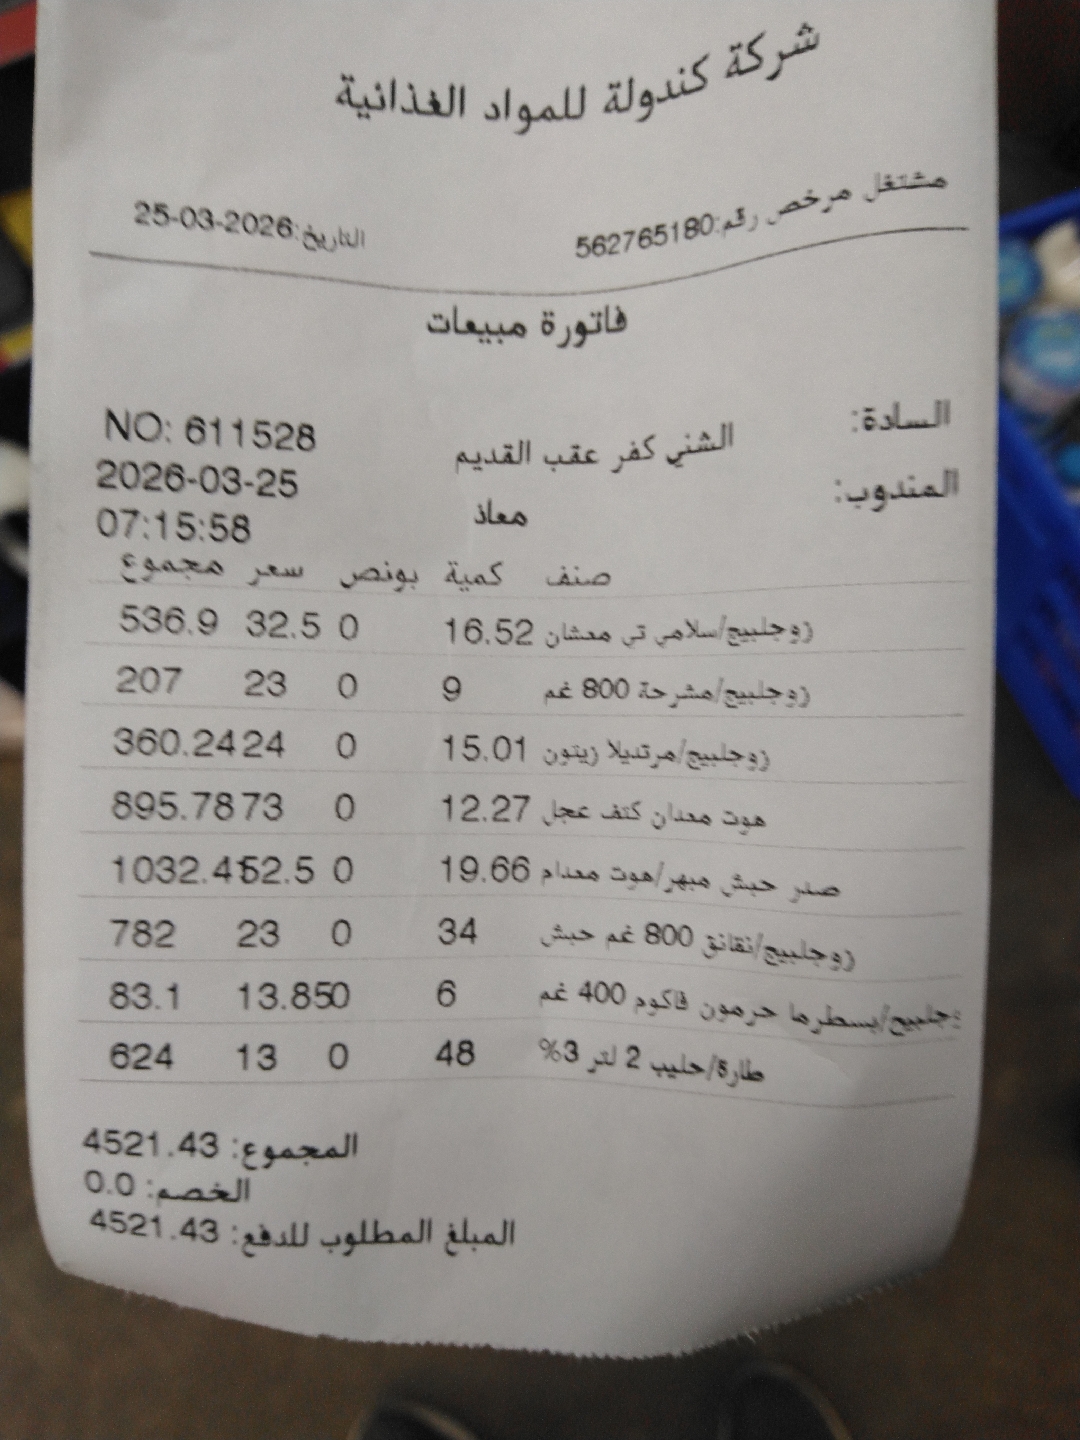 شركة كندولة للمواد الغذائية
مشتغل مرخص رقم:562765180 التاريخ:25-03-2026
فاتورة مبيعات
السادة: الشني كفر عقب القديم NO: 611528
المندوب: معاذ 2026-03-25
07:15:58
صنف كمية بونص سعر مجموع
زوجلبيج/سلامي تي معشان 16.52 0 32.5 536.9
زوجلبيج/مشرحة 800 غم 9 0 23 207
زوجلبيج/مرتديلا زيتون 15.01 0 24 360.24
هوت معدان كتف عجل 12.27 0 73 895.78
صدر حبش مبهر/هوت معدام 19.66 0 52.5 1032.4
زوجلبيج/نقانق 800 غم حبش 34 0 23 782
وجلبيج/بسطرما حرمون فاكوم 400 غم 6 0 13.85 83.1
طارة/حليب 2 لتر 3% 48 0 13 624
المجموع: 4521.43
الخصم: 0.0
المبلغ المطلوب للدفع: 4521.43